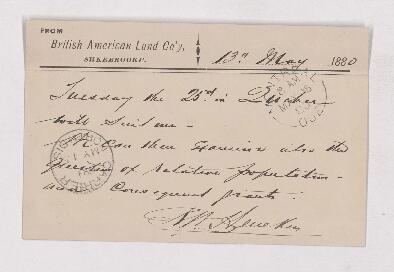 FROM
British American Land Co'y,
SHERBROOKE.
13th May 1880
Tuesday the 25th in Quebec
will suit me —
We can then examine also the
question of relative population
and consequent grants.